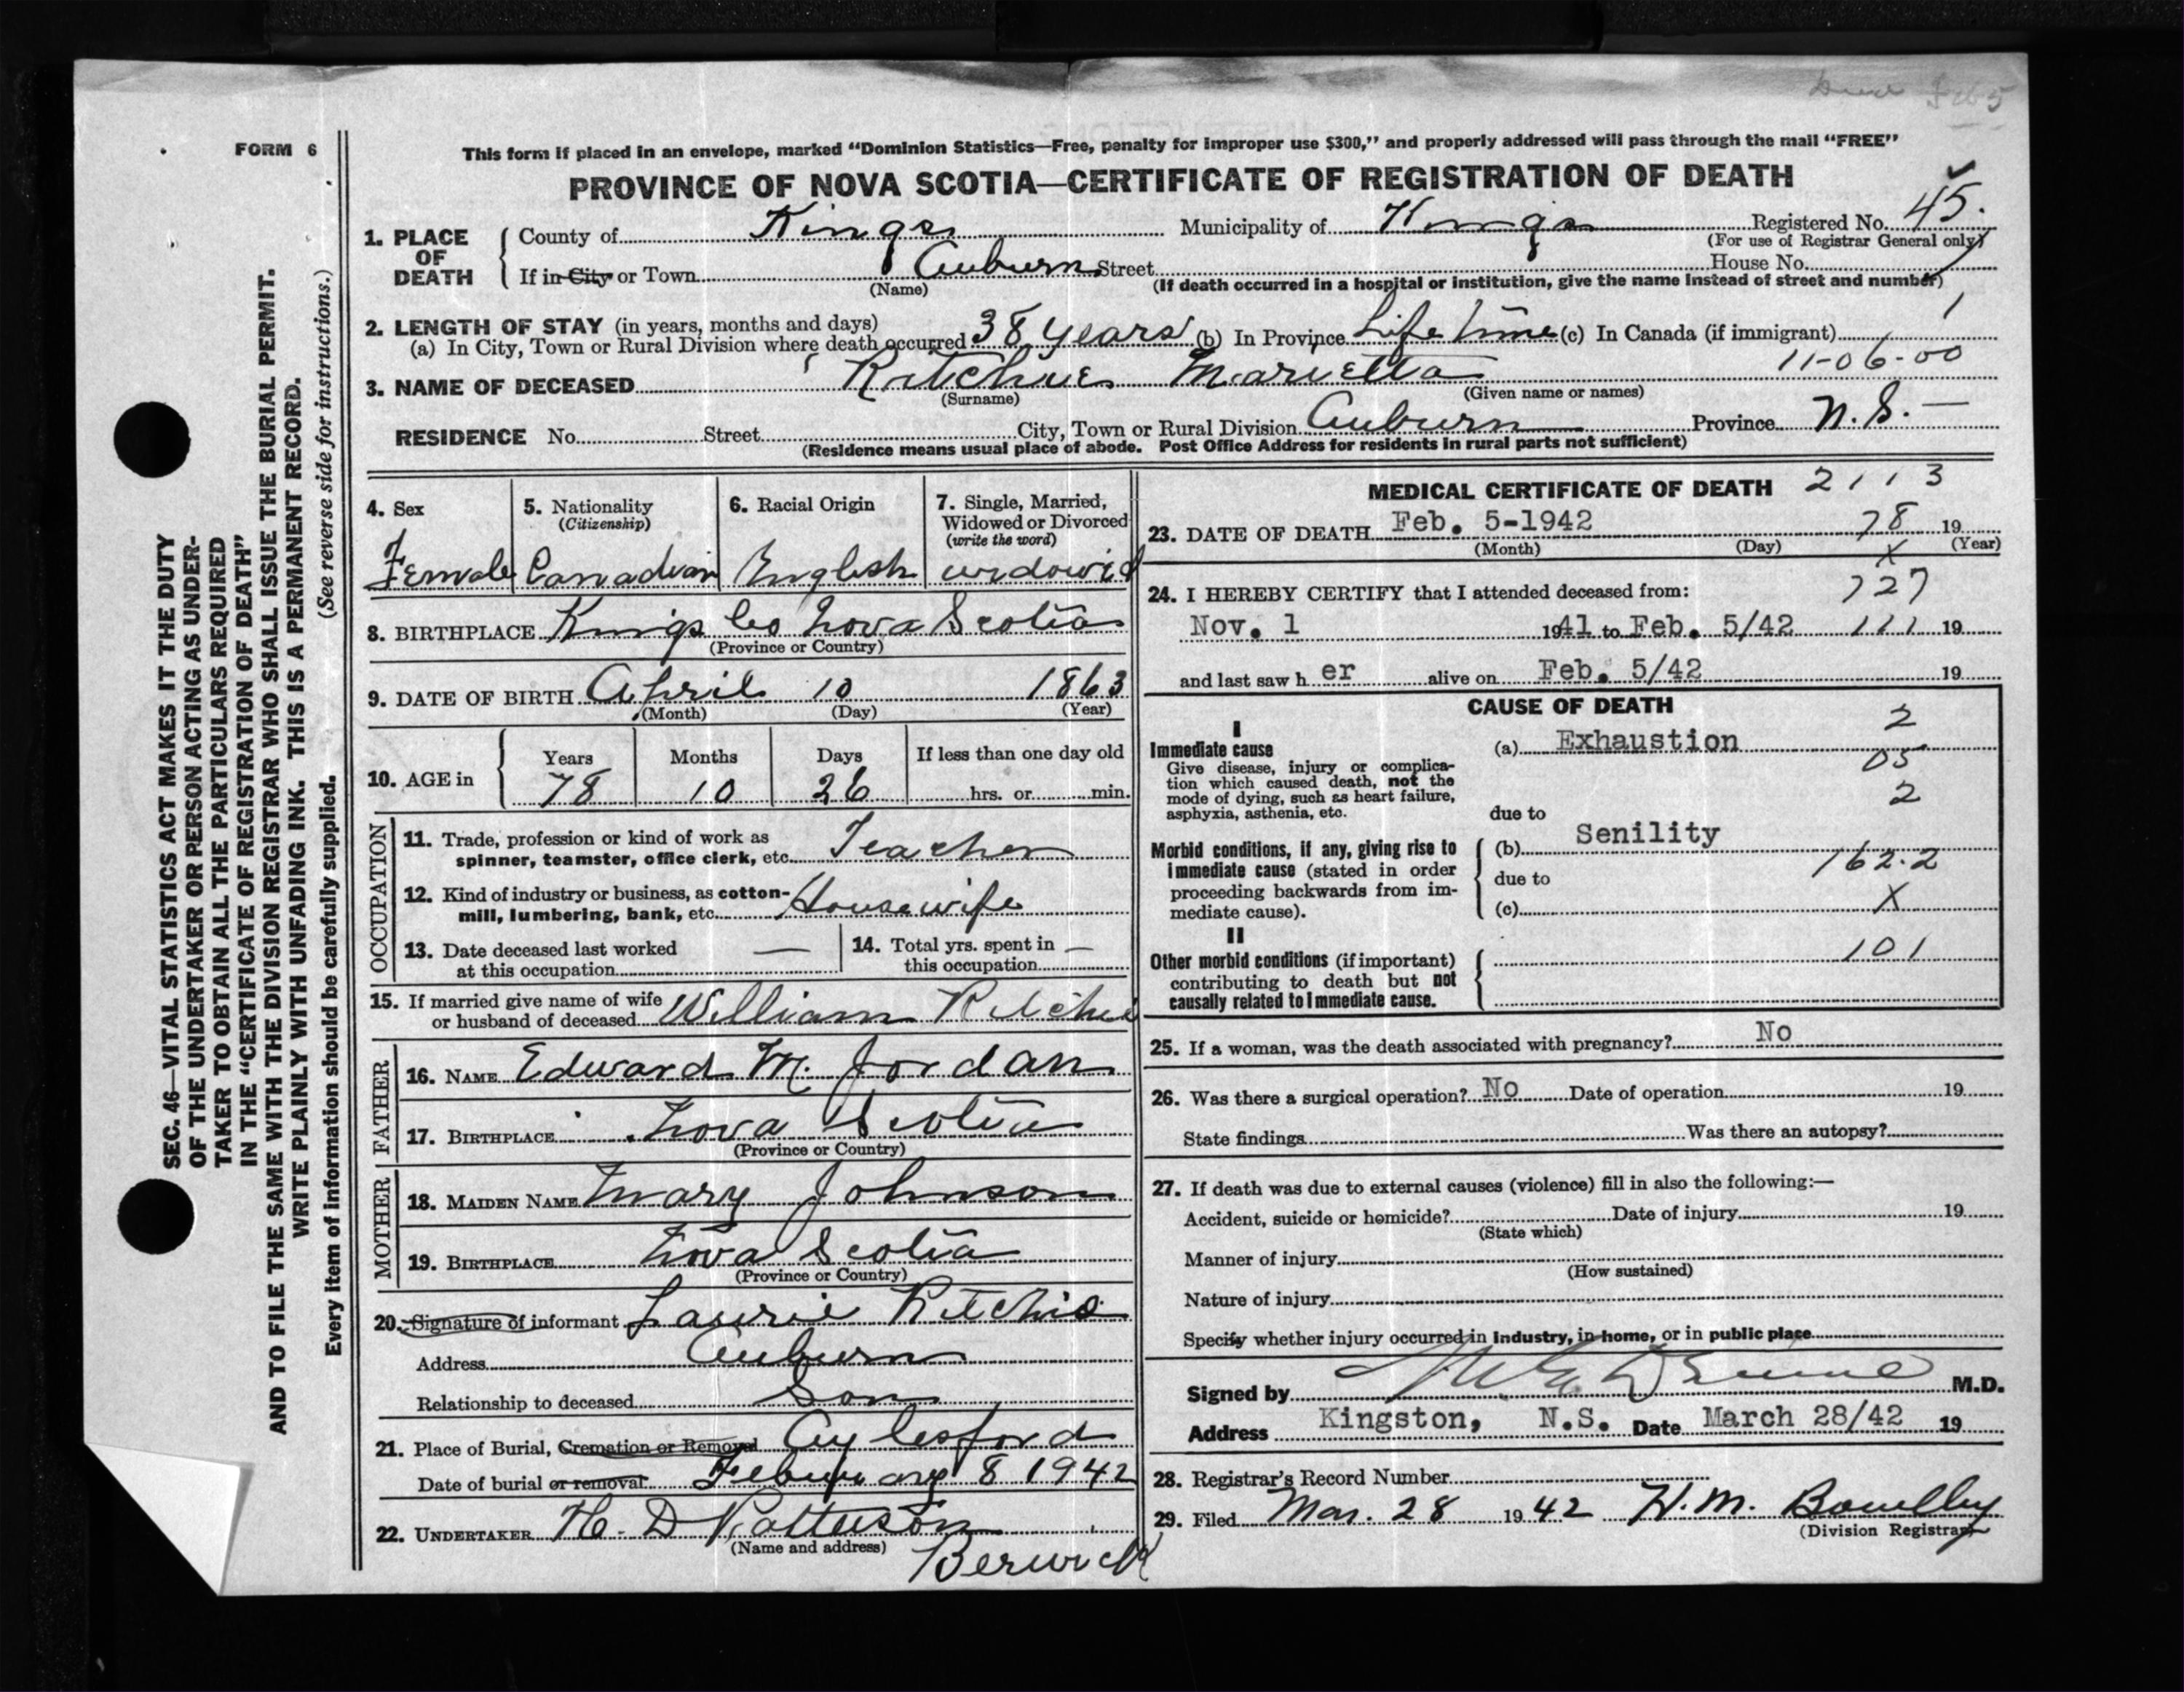 Feb 5
FORM 6
This form if placed in an envelope, marked “Dominion Statistics—Free, penalty for improper use $300,” and properly addressed will pass through the mail “FREE”
PROVINCE OF NOVA SCOTIA—CERTIFICATE OF REGISTRATION OF DEATH
1. PLACE OF DEATH County of Kings Municipality of Kings Registered No. 45.
(For use of Registrar General only)
If in City or Town Auburn Street House No.
(Name) (If death occurred in a hospital or institution, give the name instead of street and number)
2. LENGTH OF STAY (in years, months and days)
(a) In City, Town or Rural Division where death occurred 38 years (b) In Province Life time (c) In Canada (if immigrant) 1
11-06-00
3. NAME OF DECEASED Ritchie Marietta
(Surname) (Given name or names)
RESIDENCE No. Street City, Town or Rural Division Auburn Province N.S. —
(Residence means usual place of abode. Post Office Address for residents in rural parts not sufficient)
4. Sex
Female
5. Nationality
(Citizenship)
Canadian
6. Racial Origin
English
7. Single, Married,
Widowed or Divorced
(write the word)
widowed
8. BIRTHPLACE Kings Co Nova Scotia
(Province or Country)
9. DATE OF BIRTH April 10 1863
(Month) (Day) (Year)
10. AGE in
Years Months Days If less than one day old
78 10 26 hrs. or min.
OCCUPATION
11. Trade, profession or kind of work as
spinner, teamster, office clerk, etc. Teacher
12. Kind of industry or business, as cotton-
mill, lumbering, bank, etc. Housewife
13. Date deceased last worked —
at this occupation
14. Total yrs. spent in —
this occupation
15. If married give name of wife
or husband of deceased William Ritchie
FATHER
16. NAME Edward M. Jordan
17. BIRTHPLACE Nova Scotia
(Province or Country)
MOTHER
18. MAIDEN NAME Mary Johnson
19. BIRTHPLACE Nova Scotia
(Province or Country)
20. Signature of informant Laurie Ritchie
Address Auburn
Relationship to deceased Son
21. Place of Burial, Cremation or Removal Aylesford
Date of burial or removal February 8 1942
22. UNDERTAKER H. D Patterson
(Name and address) Berwick
MEDICAL CERTIFICATE OF DEATH 2113
23. DATE OF DEATH Feb. 5-1942 78 19
(Month) (Day) (Year)
X
24. I HEREBY CERTIFY that I attended deceased from: 727
Nov. 1 1941 to Feb. 5/42 111 19
and last saw h er alive on Feb. 5/42 19
CAUSE OF DEATH
2
I
Immediate cause
Give disease, injury or complica-
tion which caused death, not the
mode of dying, such as heart failure,
asphyxia, asthenia, etc.
(a) Exhaustion
05
2
due to
Morbid conditions, if any, giving rise to
immediate cause (stated in order
proceeding backwards from im-
mediate cause).
(b) Senility
162.2
due to
(c) X
II
Other morbid conditions (if important)
contributing to death but not
causally related to immediate cause.
101
25. If a woman, was the death associated with pregnancy? No
26. Was there a surgical operation? No Date of operation 19
State findings Was there an autopsy?
27. If death was due to external causes (violence) fill in also the following:—
Accident, suicide or homicide? Date of injury 19
(State which)
Manner of injury
(How sustained)
Nature of injury
Specify whether injury occurred in industry, in home, or in public place
Signed by M.D.
Address Kingston, N.S. Date March 28/42 19
28. Registrar's Record Number
29. Filed Mar. 28 1942 H. M.
(Division Registrar)
SEC. 46—VITAL STATISTICS ACT MAKES IT THE DUTY
OF THE UNDERTAKER OR PERSON ACTING AS UNDER-
TAKER TO OBTAIN ALL THE PARTICULARS REQUIRED
IN THE “CERTIFICATE OF REGISTRATION OF DEATH”
AND TO FILE THE SAME WITH THE DIVISION REGISTRAR WHO SHALL ISSUE THE BURIAL PERMIT.
WRITE PLAINLY WITH UNFADING INK. THIS IS A PERMANENT RECORD.
Every item of information should be carefully supplied. (See reverse side for instructions.)